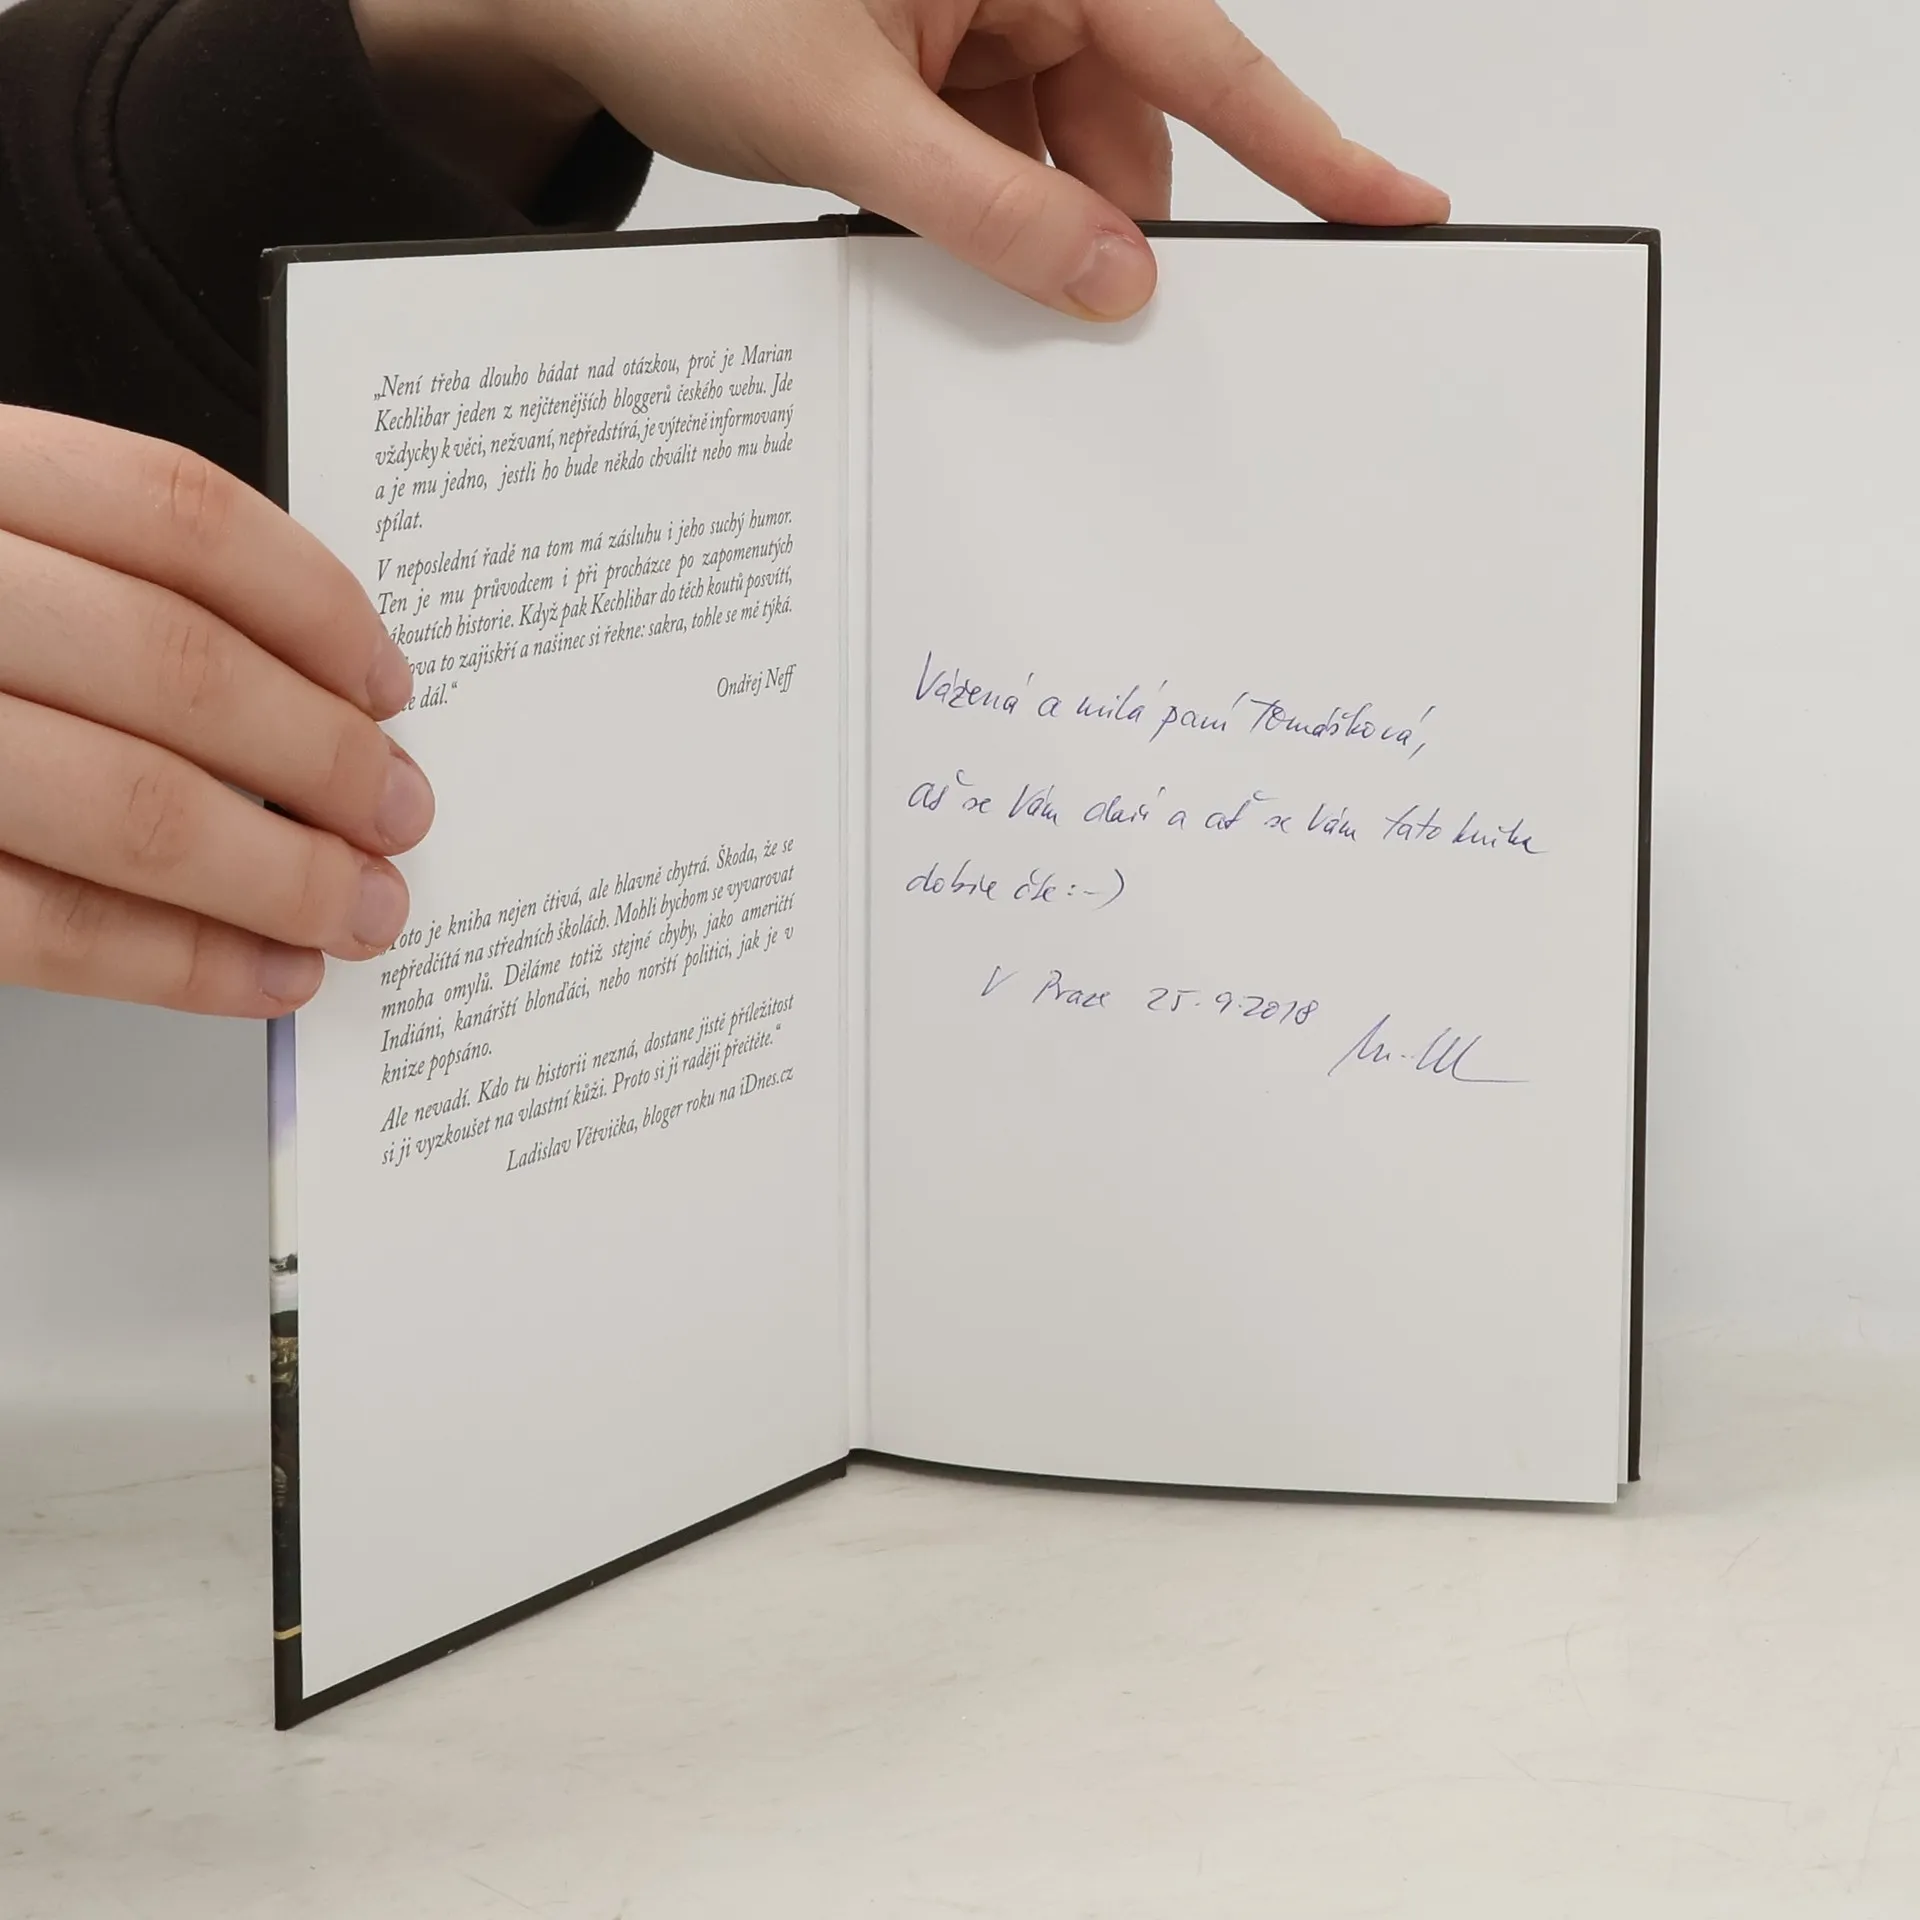 „Není třeba dlouho bádat nad otázkou, proč je Marian
Kechlibar jeden z nejčtenějších bloggerů českého webu. Jde
vždycky k věci, nežvaní, nepředstírá, je výtečně informovaný
a je mu jedno, jestli ho bude někdo chválit nebo mu bude
spílat.
V neposlední řadě na tom má zásluhu i jeho suchý humor.
Ten je mu průvodcem i při procházce po zapomenutých
ákoutích historie. Když pak Kechlibar do těch koutů posvítí,
ova to zajiskří a našinec si řekne: sakra, tohle se mě týká.
e dál.“
Ondřej Neff
Toto je kniha nejen čtivá, ale hlavně chytrá. Škoda, že se
nepředčítá na středních školách. Mohli bychom se vyvarovat
mnoha omylů. Děláme totiž stejné chyby, jako američtí
Indiáni, kanárští blonďáci, nebo norští politici, jak je v
knize popsáno.
Ale nevadí. Kdo tu historii nezná, dostane jistě příležitost
si ji vyzkoušet na vlastní kůži. Proto si ji raději přečtěte.“
Ladislav Větvička, bloger roku na iDnes.cz
Vážená a milá paní Tomášková,
ať se Vám daří a ať se Vám tato kniha
dobře čte :-)
V Praze 25.9.2018